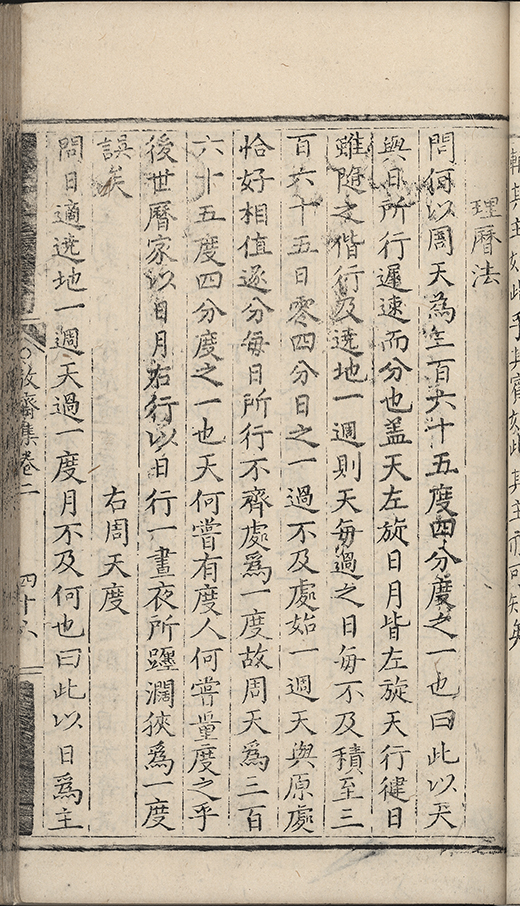 理曆法
問何以周天為三百六十五度四分度之一也曰此以天
與日所行遲速而分也盖天左旋日月皆左旋天行健日
雖隨之偕行及遶地一週則天每過之日每不及積至三
百六十五日零四分日之一過不及處始一週天與原處
恰好相值逐分每日所行不齊處爲一度故周天爲三百
六十五度四分度之一也天何嘗有度人何嘗量度之乎
後世曆家以日月右行以日行一晝夜所躔濶狹爲一度
誤矣
右周天度
問日適遶地一週天過一度月不及何也曰此以日爲主
齋集卷二
四十六